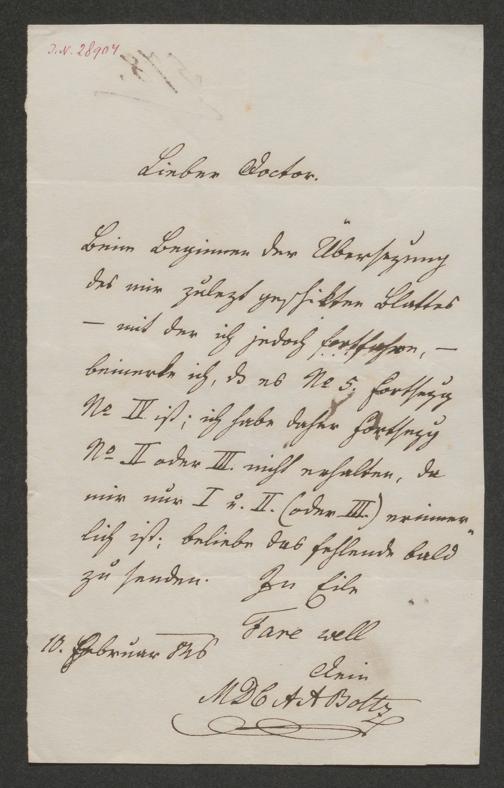 I. N. 28904
Lieber Doctor.
Beim Beginnen der Übersezung
des mir zulezt geschikten Blattes
— mit der ich jedoch fortfahre, —
bemerke ich, ds es No 5. Fortsezg
No IV ist; ich habe daher Fortsezg
No II oder III. nicht erhalten, da
mir nur I u. II. (oder III.) erinner„
lich ist; beliebe das fehlende bald
zu senden. In Eile
Fare well
10. Februar 846
Dein
MDC A A Boltz